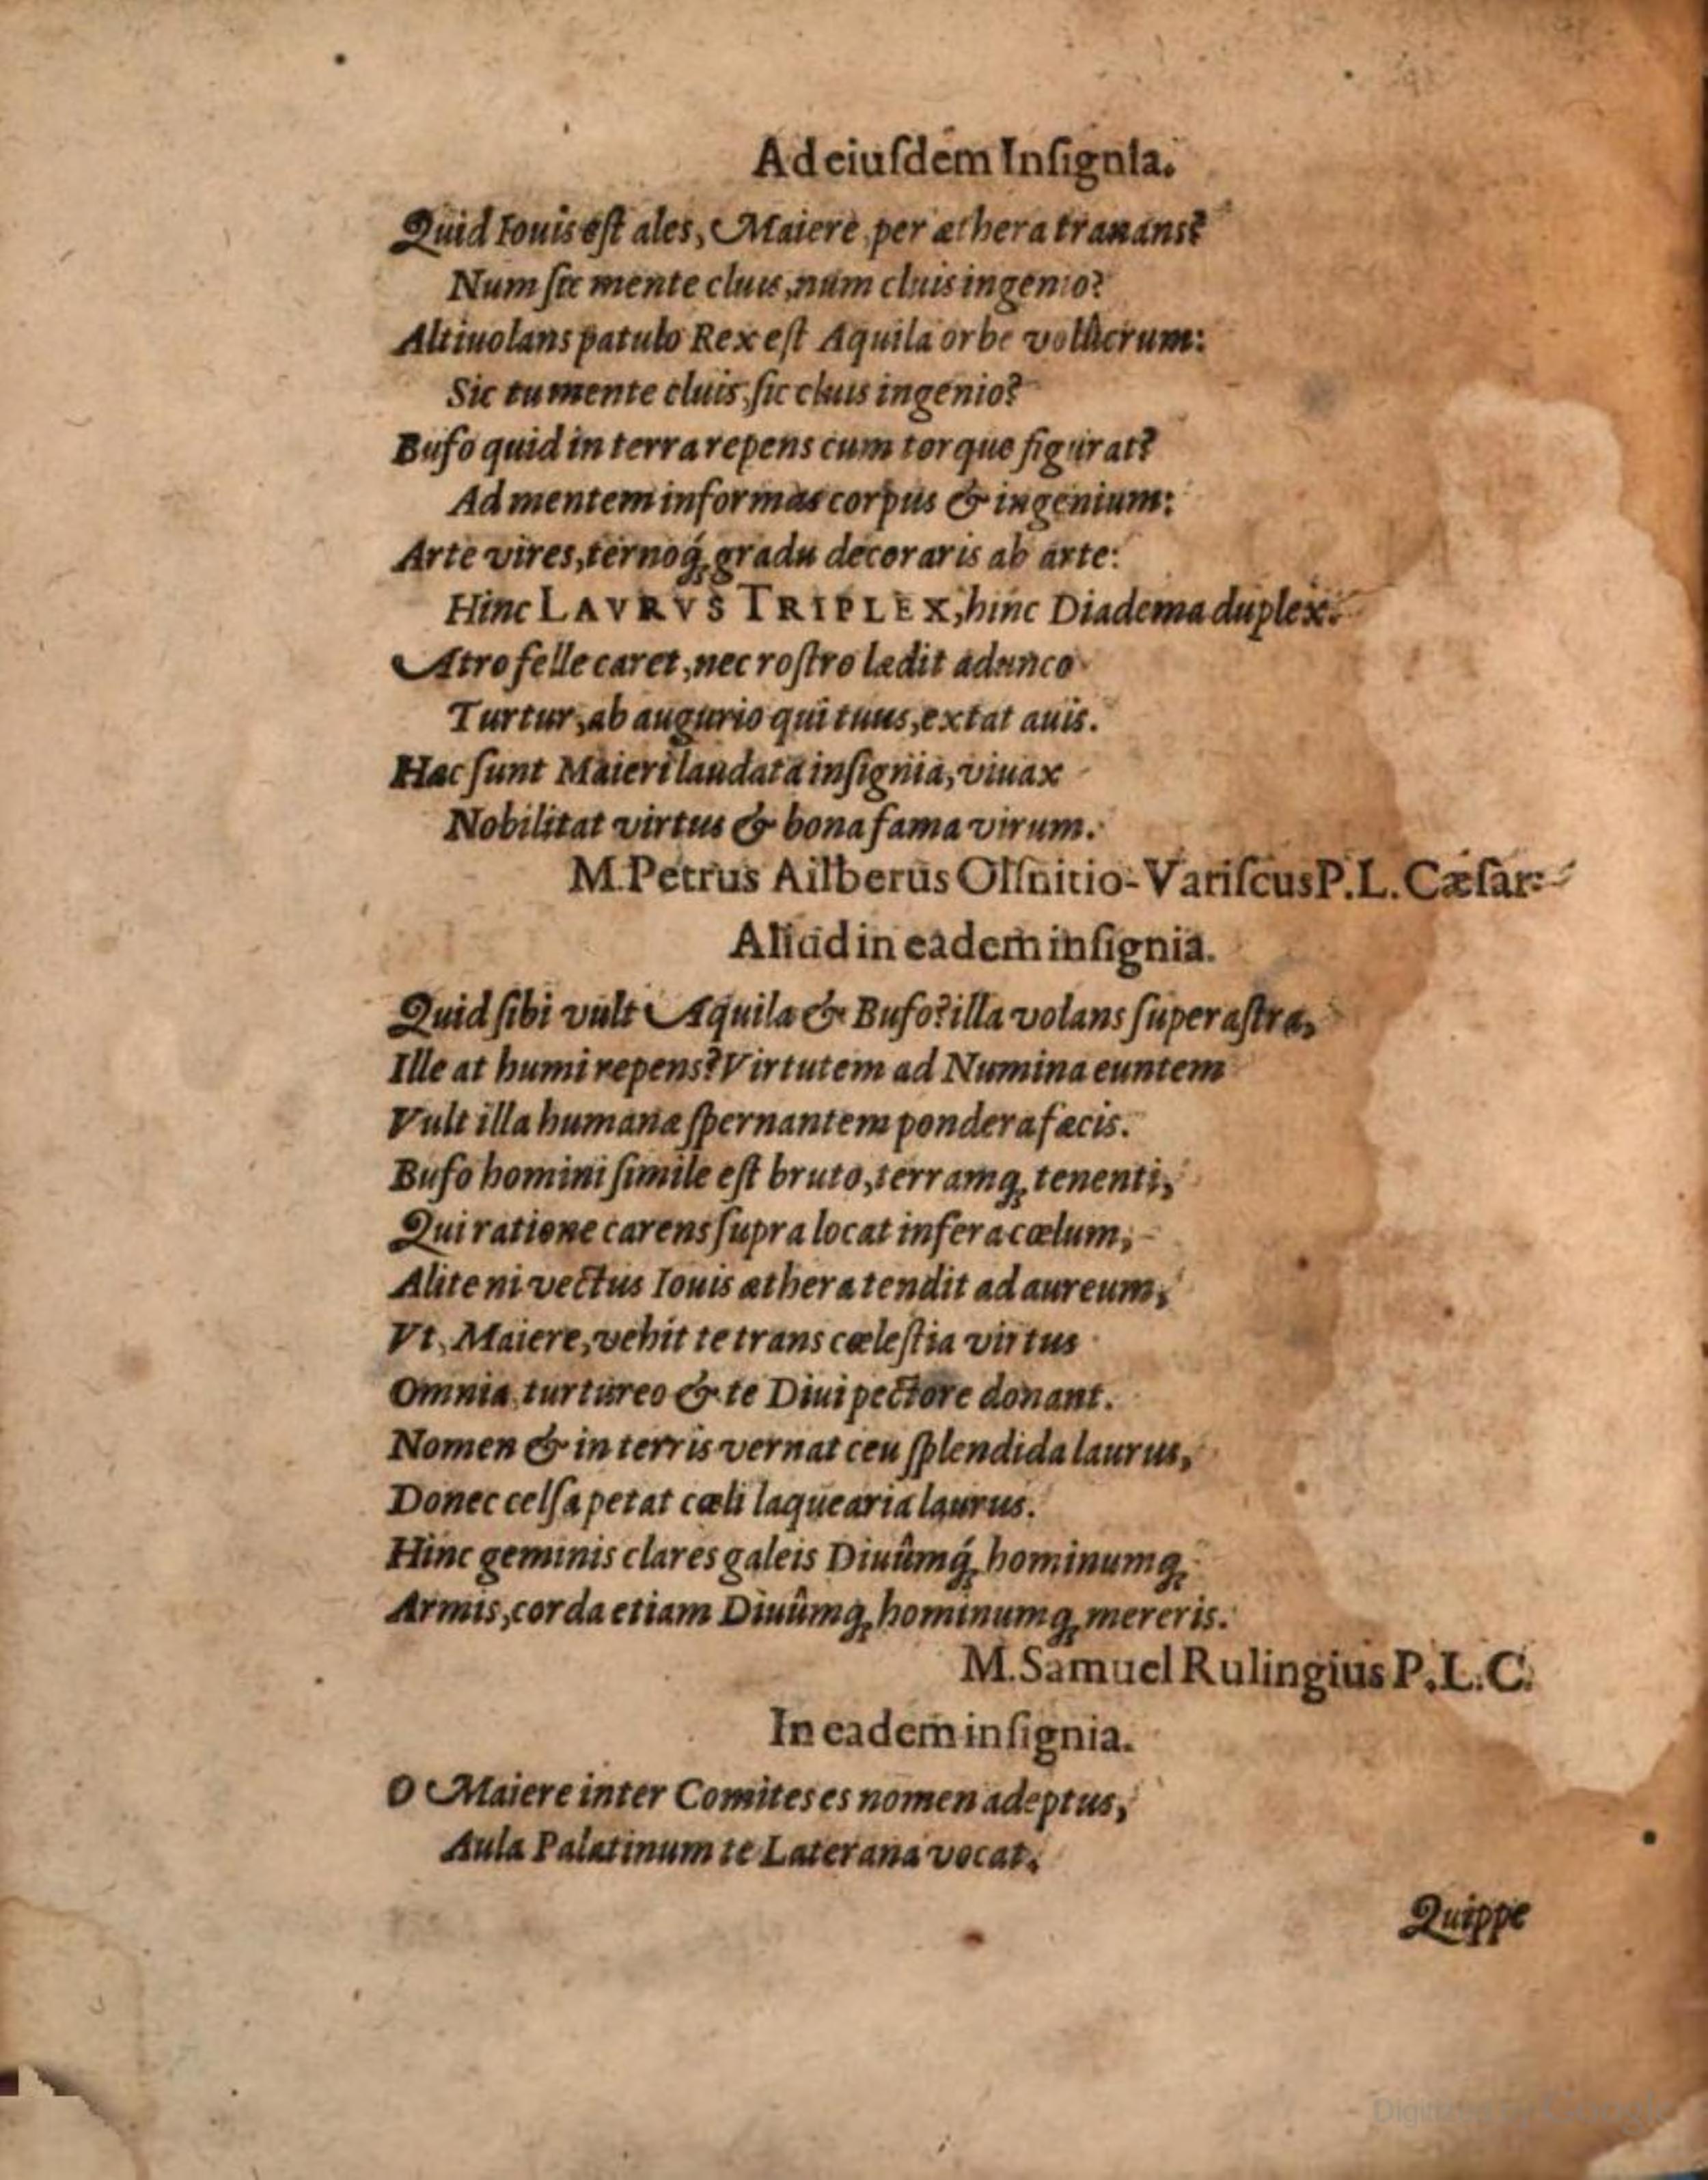 Ad eiuſdem Inſignia.
Quid Iouis eſt ales, Maiere, per æthera tranans?
Num ſic mente cluis, num cluis ingenio?
Altiuolans patulo Rex eſt Aquila orbe volûcrum:
Sic tu mente cluis, ſic cluis ingenio?
Bufo quid in terra repens cum torque figurat?
Ad mentem informas corpus & ingenium:
Arte vires, ternoq́; gradu decoraris ab arte:
Hinc LAVRVS TRIPLEX, hinc Diadema duplex.
Atro felle caret, nec roſtro lædit adunco
Turtur, ab augurio qui tuus, extat auis.
Hæc ſunt Maieri laudata inſignia, viuax
Nobilitat virtus & bona fama virum.
M. Petrus Ailberus Olſnitio-Variſcus P.L. Cæſar:
Aliud in eadem inſignia.
Quid ſibi vult Aquila & Bufo? illa volans ſuper aſtra,
Ille at humi repens? Virtutem ad Numina euntem
Vult illa humanæ ſpernantem pondera fæcis.
Bufo homini ſimile eſt bruto, terramq; tenenti,
Qui ratione carens ſupra locat infera cœlum,
Alite ni vectus Iouis æthera tendit ad aureum,
Vt, Maiere, vehit te trans cœleſtia virtus
Omnia, turtureo & te Diui pectore donant.
Nomen & in terris vernat ceu ſplendida laurus,
Donec celſa petat cœli laquearia laurus.
Hinc geminis clares galeis Diuûmq́; hominumq;
Armis, corda etiam Diuûmq; hominumq; mereris.
M. Samuel Rulingius P.L.C.
In eadem inſignia.
O Maiere inter Comites es nomen adeptus,
Aula Palatinum te Laterana vocat.
Quippe
Digitized by Google